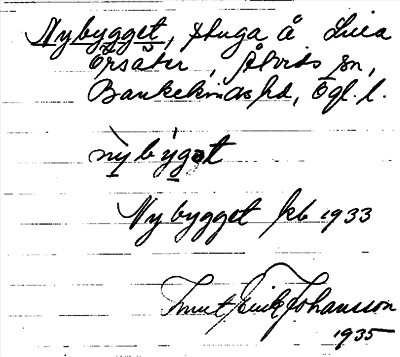 Nybygget, stuga å Lilla
Örsäter, Älvids sn,
Bankekinds hd, Ögl. l.
nybygət
Nybygget kb 1933
Knut Erik Johansson
1935